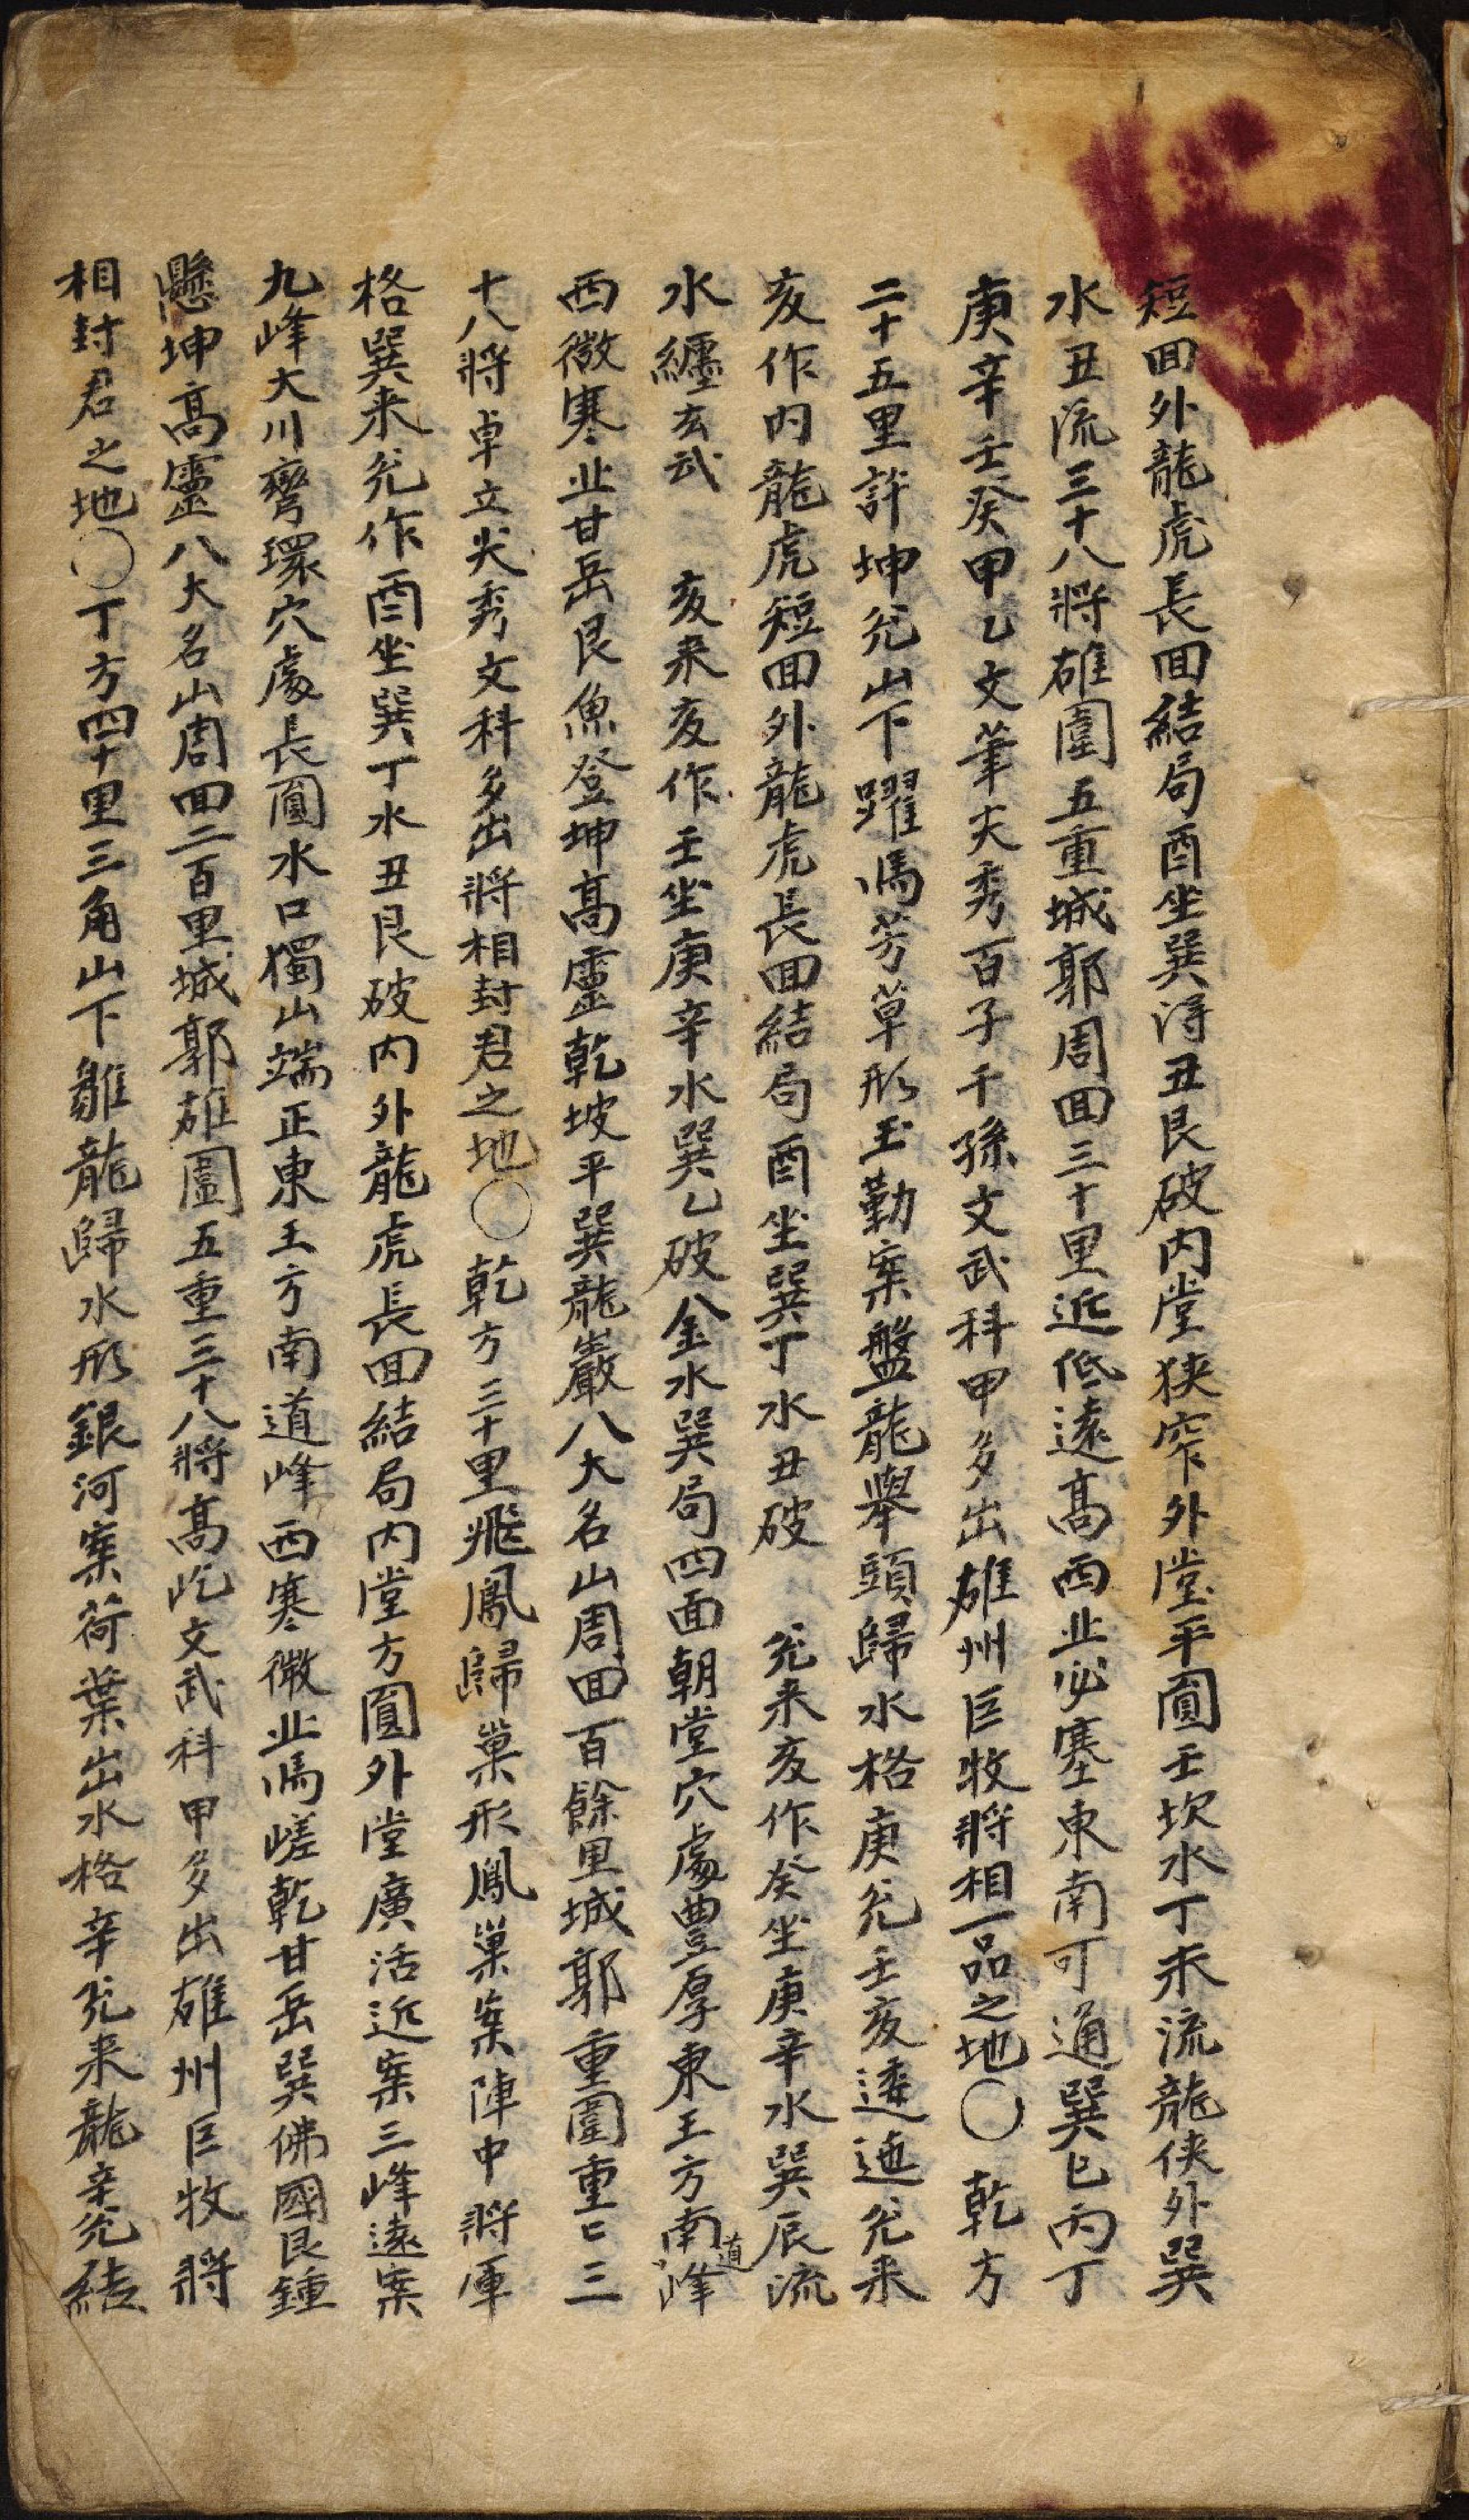 短回外龍虎長回結局酉坐巽淂丑艮破內堂狹窄外堂平圓壬坎水丁未流龍俠外巽
水丑流三十八將雄圍五重城郭周回三十里近低遠高西北必塞東南可通巽巳丙丁
庚辛壬癸甲乙文筆尖秀百子千孫文武科甲多出雄州巨牧將相一品之地〇乾方
二十五里許坤兊山下躍馬芳草形玉勒案盤龍擧頭歸水格庚兊壬亥逶迤兊来
亥作內龍虎短回外龍虎長回結局酉坐巽丁水丑破 兊来亥作癸坐庚辛水巽辰流
水纏玄武 亥来亥作壬坐庚辛水巽乙破金水巽局四面朝堂穴處豊厚東王方南道峰
西微寒北甘岳艮魚登坤高靈乾坡平巽龍巖八大名山周回百餘里城郭重圍重〻三
十八將卓立尖秀文科多出將相封君之地〇乾方三十里飛鳳歸巢形鳳巢案陣中將軍
格巽来兊作酉坐巽丁水丑艮破內外龍虎長回結局內堂方圓外堂廣活近案三峰遠案
九峰大川彎環穴處長圓水口獨山端正東王方南道峰西寒微北馬嵯乾甘岳巽佛國艮鍾
懸坤高靈八大名山周回二百里城郭雄圍五重三十八將高屹文武科甲多出雄州巨牧將
相封君之地〇丁方四十里三角山下雛龍歸水形銀河案荷葉出水格辛兊来龍辛兊結